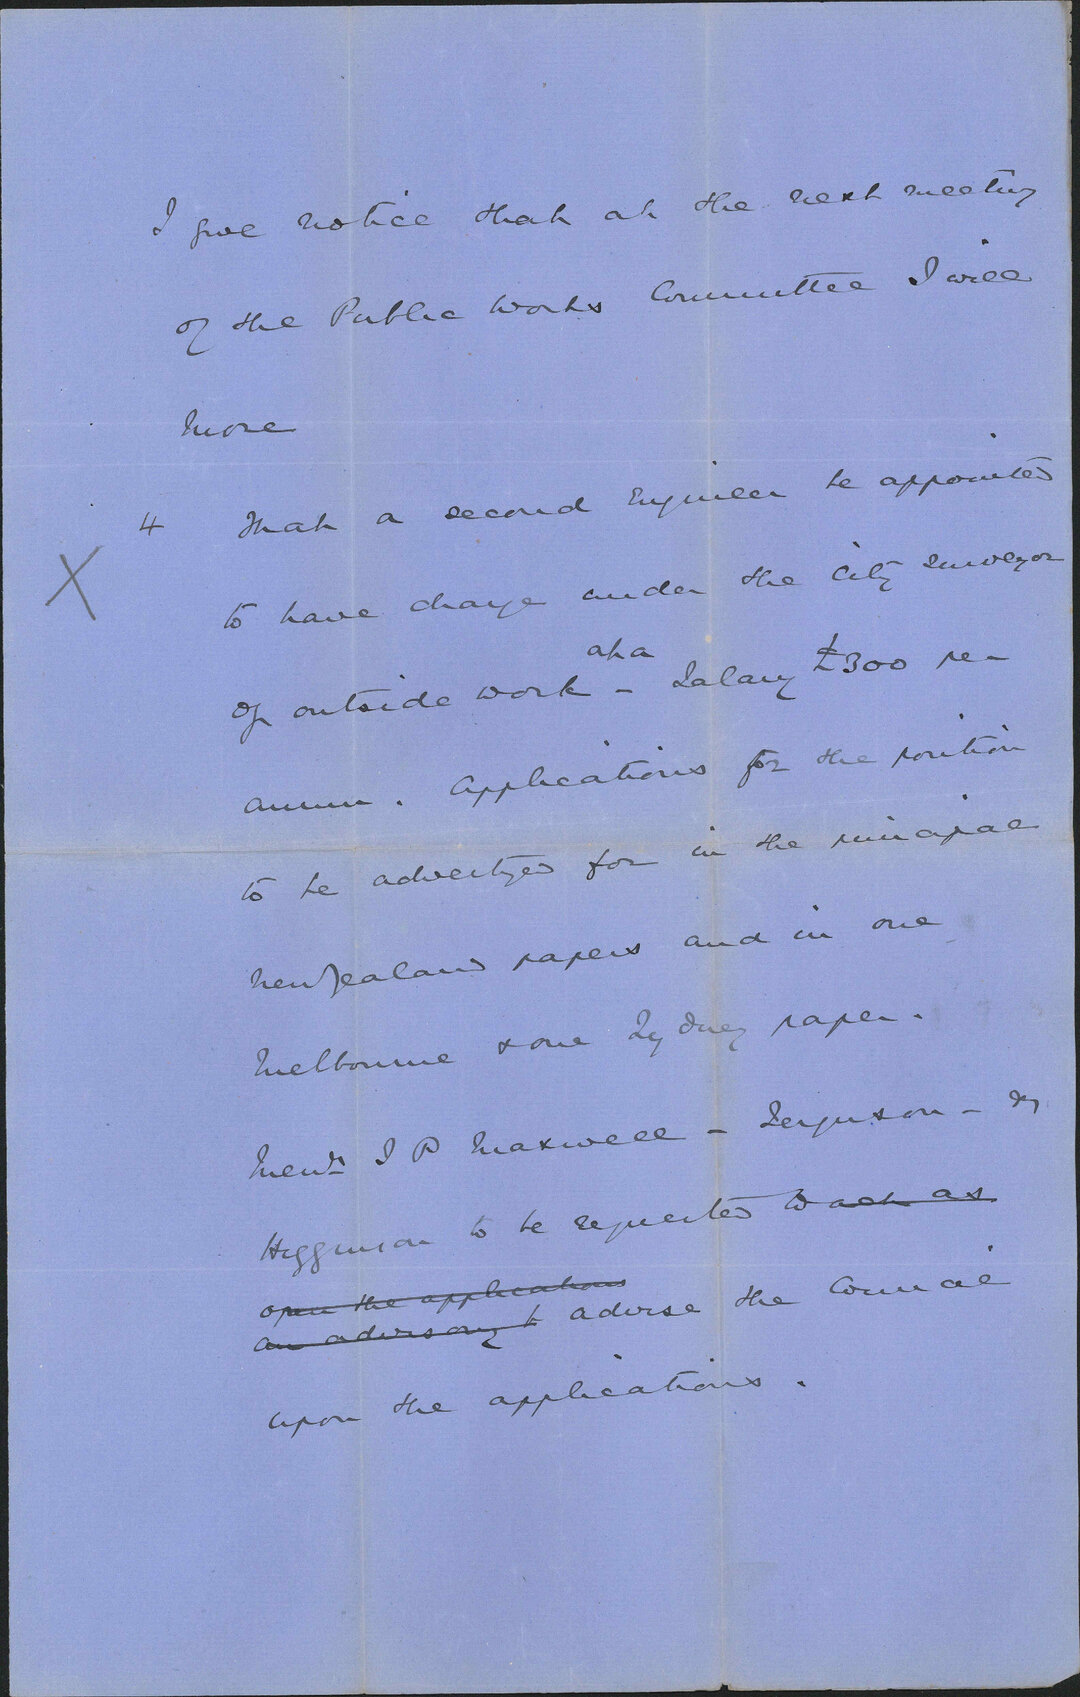 I give notice that at the next meeting
of the Public Works Committee I will
move
4 That a second Engineer be appointed
X
to have charge under the City Surveyor
at a
of outside work - Salary £300 per
annum. Applications for the position
to be advertized for in the principal
New Zealand papers and in one
Melbourne & one Sydney paper.
Messrs J P Maxwell - Ferguson - &
Higginson to be requested to act as
open the applications
an advisory to advise the Council
upon the applications.